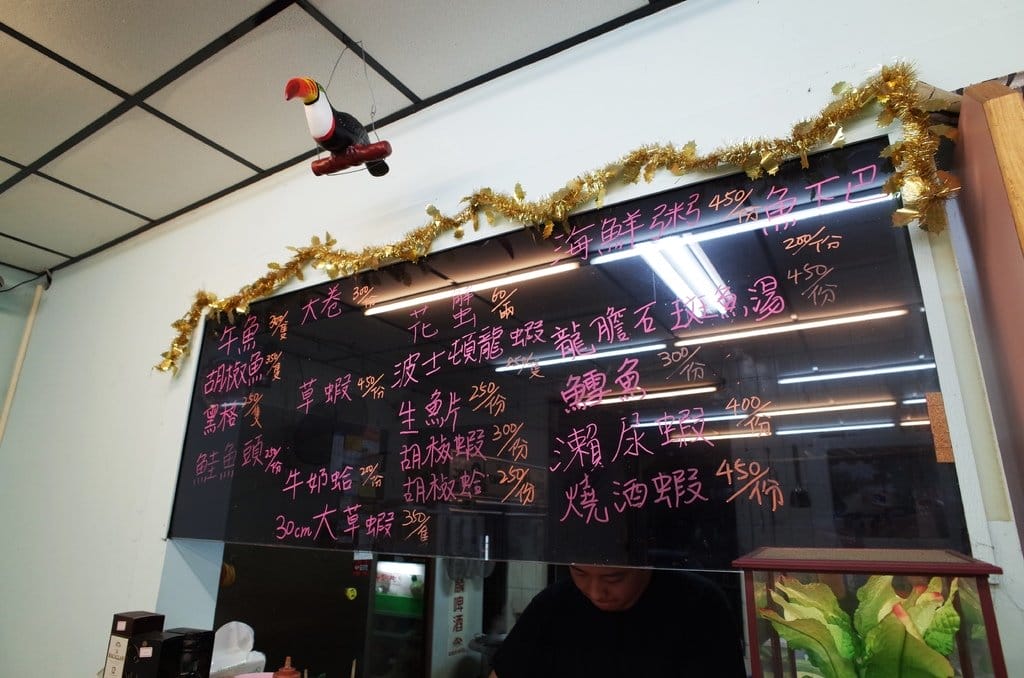 午魚 300/隻
胡椒魚 350/隻
黑格 250/隻
鮭魚頭 250/份
大卷 300/份
草蝦 450/份
牛奶蛤 200/份
30cm大草蝦 350/隻
花蟹 60/兩
波士頓龍蝦
生魚片 250/份
胡椒蝦 300/份
胡椒蛤 250/份
海鮮粥 450/份
龍膽石斑魚湯 450/份
鱈魚 300/份
瀨尿蝦 400/份
燒酒蝦 450/份
魚下巴 200/份
啤酒